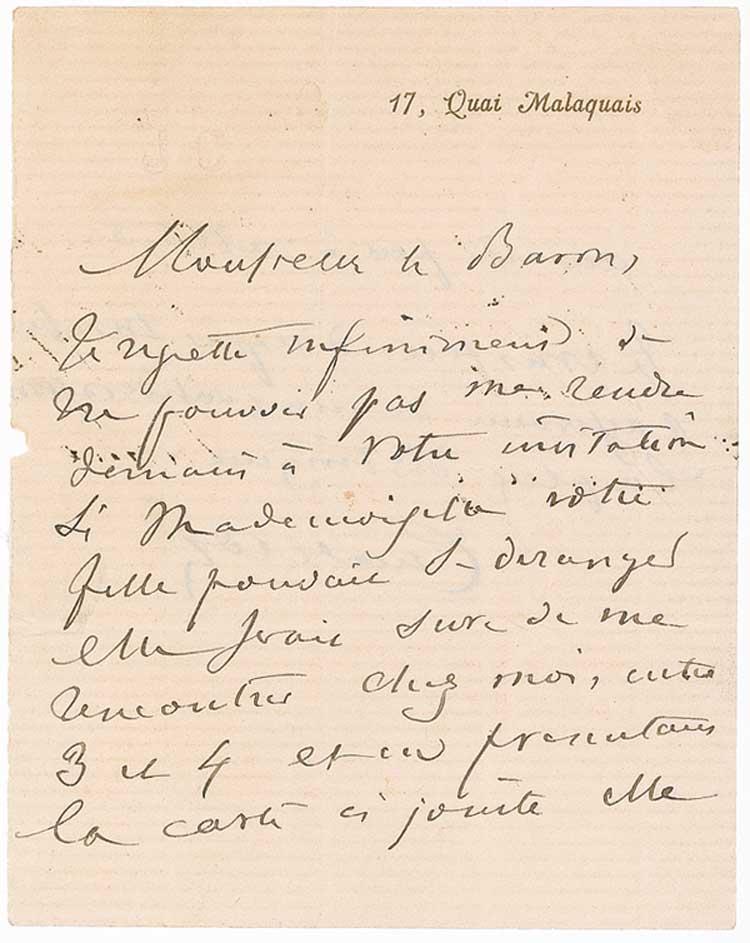 17, Quai Malaquais
Monsieur le Baron,
Je regrette infiniment de
ne pouvoir pas me rendre
demain à votre invitation
Si Mademoiselle votre
fille pouvait se deranger
elle serait sure de me
rencontrer chez moi, entre
3 et 4 et en presentant
la carte ci jointe elle